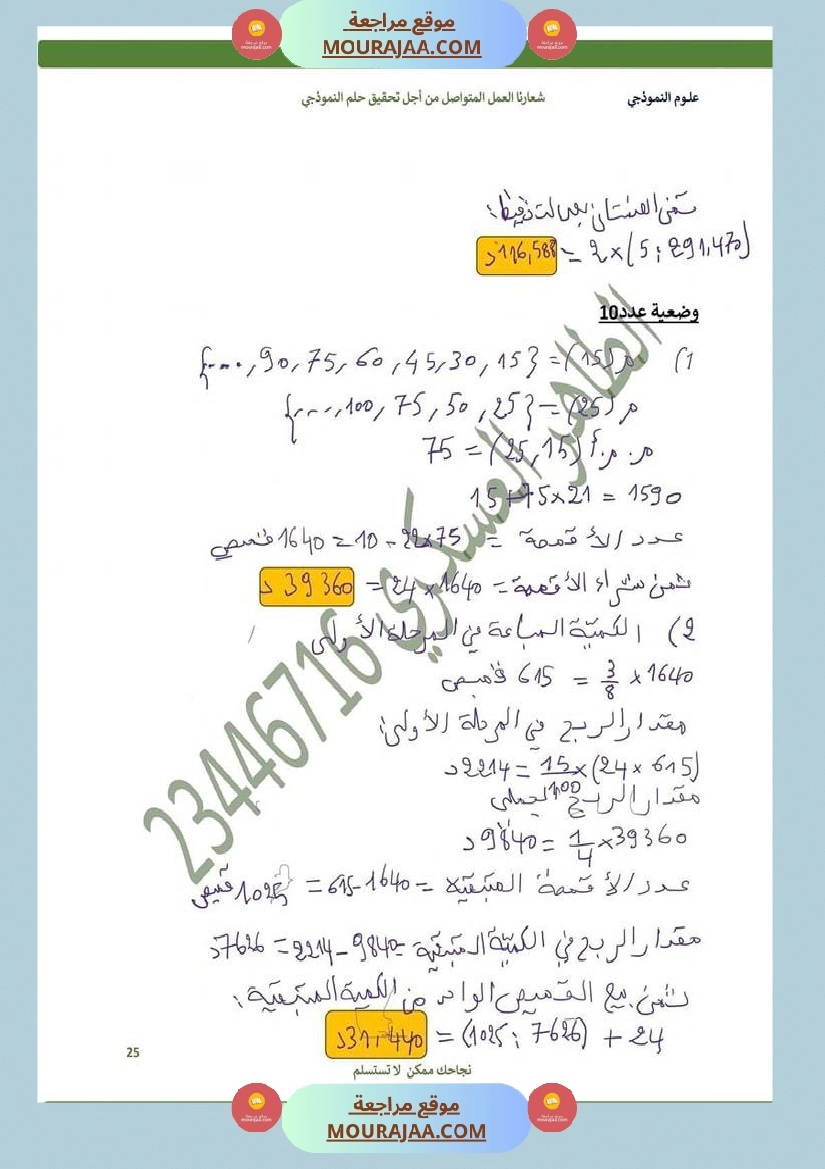 موقع مراجعة
MOURAJAA.COM
علوم النموذجي
شعارنا العمل المتواصل من أجل تحقيق حلم النموذجي
ثمن الفستان بعد التخفيض:
2×(5 : 291,470) = 116,588د
وضعية عدد10
1) م(15) = {15 ,30 ,45 ,60 ,75 ,90 ,....}
م(25) = {25 ,50 ,75 ,100 ,....}
م.م.أ (25,15) = 75
15+75×21 = 1590
عدد الأقمصة = 22×75 - 10 = 1640 قميص
ثمن شراء الأقمصة = 1640×24 = 39360 د
2) الكمية المباعة في المرحلة الأولى
1640 × 3/8 = 615 قميص
مقدار الربح في المرحلة الأولى:
(615 × 24)× 15/100 = 2214د
مقدار الربح الجملي
39360× 1/4 = 9840د
عدد الأقمصة المتبقية = 1640-615 = 1025 قميص
مقدار الربح في الكمية المتبقية = 9840-2214 = 7626د
ثمن بيع القميص الواحد من الكمية المتبقية:
24 + (7626 : 1025) = 31,440د
25
نجاحك ممكن لا تستسلم
موقع مراجعة
MOURAJAA.COM
الطاهر العسكري 23446716